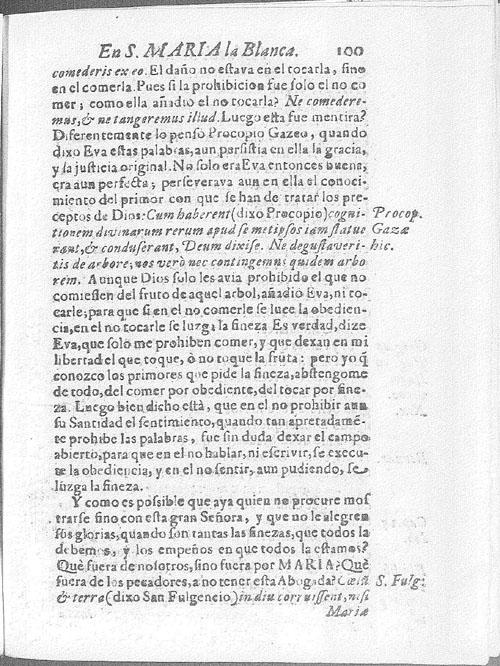 En S. MARIA la Blanca. 100
comederis ex eo. El daño no estava en el tocarla, sino
en el comerla. Pues si la prohibicion fue solo el no co
mer; como ella añadio el no tocarla? Ne comedere-
mus, & ne tangeremus illud. Luego esta fue mentira?
Diferentemente lo penso Procopio Gazeo, quando
dixo Eva estas palabras, aun persistia en ella la gracia,
y la justicia original. No solo era Eva entonces buena,
era aun perfecta; perseverava aun en ella el conoci-
miento del primor con que se han de tratar los pre-
ceptos de Dios: Cum haberent (dixo Procopio) cogni- Procop.
tionem divinarum rerum apud se metipsos iam statue Gazæ
rant, & conduserant, Deum dixise. Ne degustaveri- hic.
tis de arbore; nos verò nec contingemus quidem arbo
rem. Aunque Dios solo les avia prohibido el que no
comiessen del fruto de aquel arbol, añadio Eva, ni to-
carle; para que si en el no comerle se luce la obedien-
cia, en el no tocarle se luzga la fineza Es verdad, dize
Eva, que solo me prohiben comer, y que dexan en mi
libertad el que toque, ò no toque la fruta: pero yo q̃
conozco los primores que pide la fineza, abstengome
de todo, del comer por obediente, del tocar por fine-
za. Luego bien dicho està, que en el no prohibir aun
su Santidad el sentimiento, quando tan apretadamẽ-
te prohibe las palabras, fue sin duda dexar el campo
abierto, para que en el no hablar, ni escrivir, se execu-
te la obediencia, y en el no sentir, aun pudiendo, se
luzga la fineza.
Y como es possible que aya quien no procure mos
trarse fino con esta gran Señora, y que no le alegren
sus glorias, quando son tantas las finezas, que todos la
debemos, y los empeños en que todos la estamos?
Què fuera de nosotros, sino fuera por MARIA? Què
fuera de los pecadores, a no tener esta Abogada? Cæli S. Fulg:
& terra (dixo San Fulgencio) in diu corruissent, nisi
Mariæ